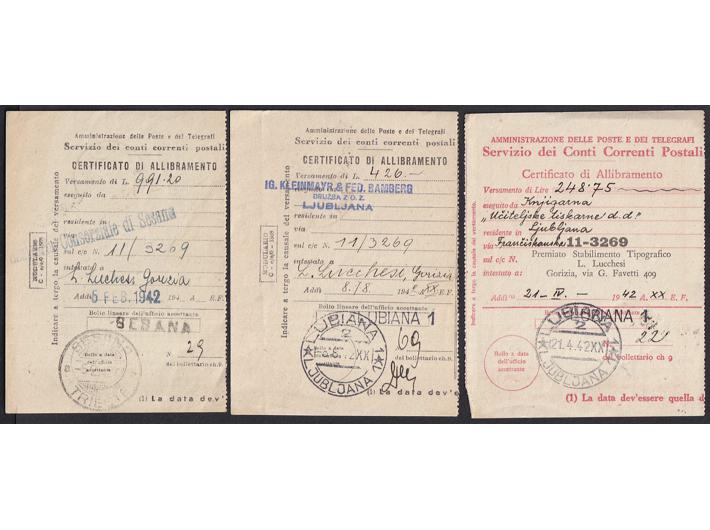 Amministrazione delle Poste e dei Telegrafi
Servizio dei conti correnti postali
CERTIFICATO DI ALLIBRAMENTO
Versamento di L. 991.20
eseguito da
Consorziale di Sesana
residente in
via
sul c/c N. 11/3269
intestato a
L. Lucchesi Gorizia
Addì 5 FEB. 1942 194 E. F.
Bollo lineare dell'ufficio accettante
SESANA
SESANA
TRIESTE
Bollo a data
dell'ufficio
accettante
N. 29
del bollettario ch. 9
(1) La data dev'
Indicare a tergo la causale del versamento
Amministrazione delle Poste e dei Telegrafi
Servizio dei conti correnti postali
CERTIFICATO DI ALLIBRAMENTO
Versamento di L. 426.-
IG. KLEINMAYR & FED. BAMBERG
DRUŽBA Z O. Z.
LJUBLJANA
residente in
via
sul c/c N. 11/3269
intestato a
L. Lucchesi, Gorizia
Addì 8/8 1942 XX E. F.
Bollo lineare dell'ufficio accettante
LUBIANA 1
LUBIANA 1
2
LJUBLJANA 1
69
del bollettario ch. 9
(1) La data dev'
Indicare a tergo la causale del versamento
AMMINISTRAZIONE DELLE POSTE E DEI TELEGRAFI
Servizio dei Conti Correnti Postali
Certificato di Allibramento
Versamento di Lire 248'75
eseguito da Knjigarna
"Učiteljske tiskarne d.d"
residente in Ljubljana
via Frančiškanska
sul c/c N. 11-3269
Premiato Stabilimento Tipografico
L. Lucchesi
intestato a: Gorizia, via G. Favetti 409
Addì (1) 21 - IV. - 1942 A. XX E. F.
LUBIANA 1
LUBIANA 1
2
21.4.42 XX
LJUBLJANA 1
Bollo a data
dell'ufficio
accettante
221
del bollettario ch 9
(1) La data dev'essere quella d